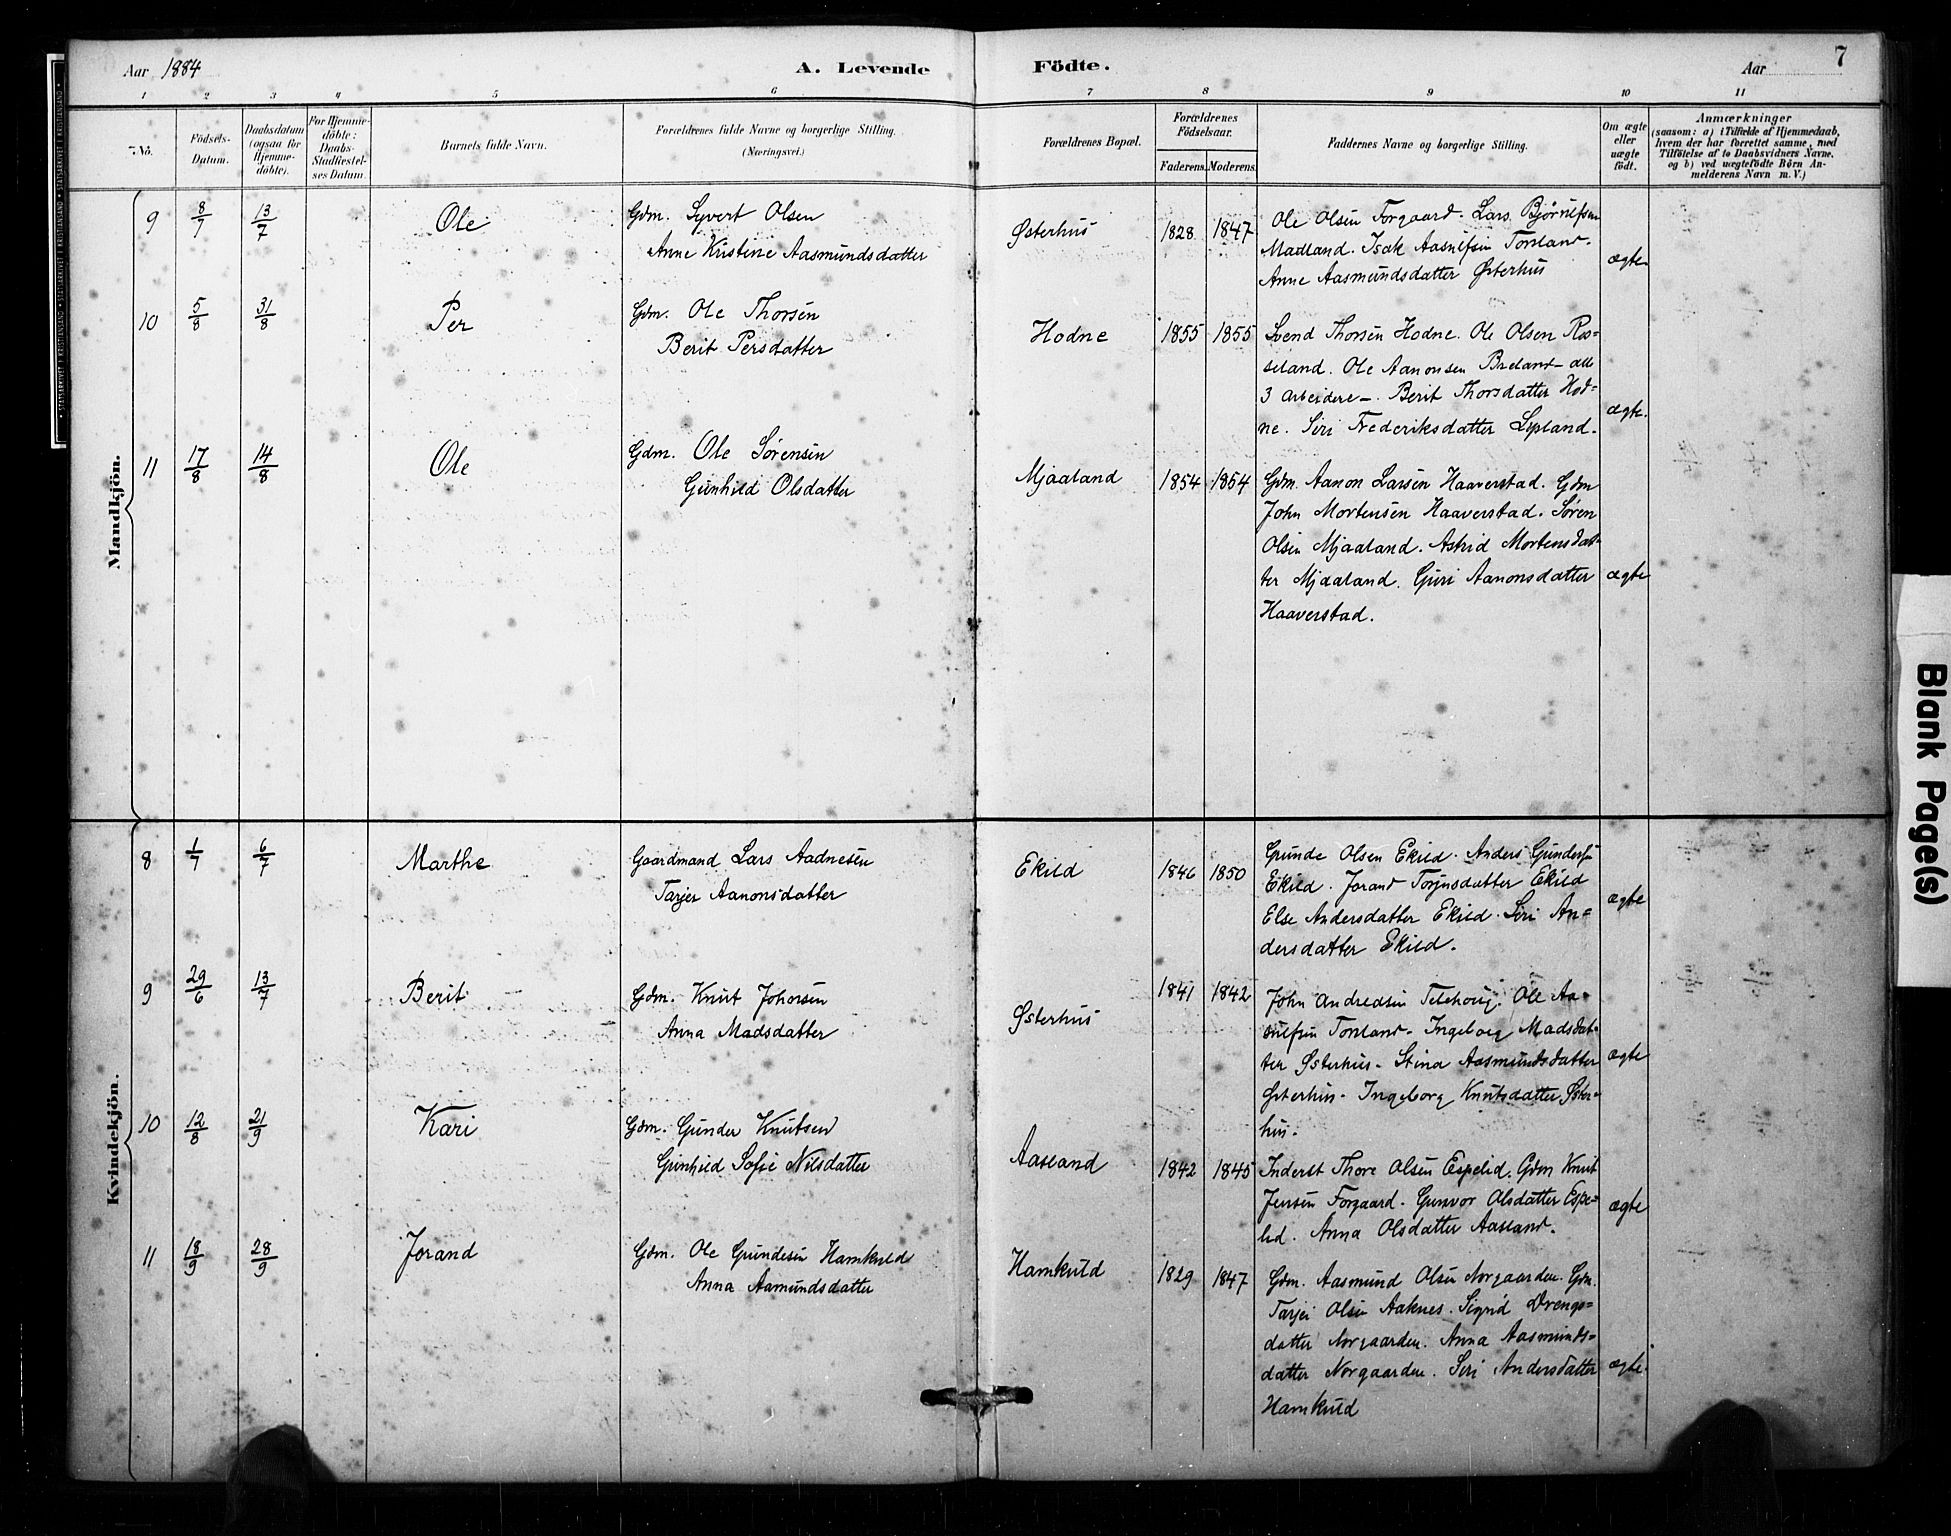 Aar 1884
A. Levende Födte.
Aar 7
1 2 3 4 5 6 7 8 9 10 11
No.
Födsels-Datum.
Daabsdatum (ogsaa för Hjemme-döbte).
For Hjemme-döbte: Daabs-Stadfæstel-ses Datum.
Barnets fulde Navn.
Forældrenes fulde Navne og borgerlige Stilling.
(Næringsvei.)
Forældrenes Bopæl.
Forældrenes Födselsaar.
Faderens. Moderens.
Faddernes Navne og borgerlige Stilling.
Om ægte eller uægte födt.
Anmærkninger
(saasom: a) i Tilfælde af Hjemmedaab,
hvem der har forrettet samme, med
Tilföielse af to Daabsvidners Navne,
og b) ved uægtefödte Börn An-
melderens Navn m. V.)
Mandkjön.
9 8/7 13/7 Ole
Gdm. Syvert Olsen
Anne Kristine Aasmundsdatter
Østerhus 1828 1847
Ole Olsen Forgaard. Lars Bjørulfsen
Madland. Isak Aasulfsen Torsland.
Anne Aasmundsdatter Østerhus
ægte
10 5/8 31/8 Per
Gdm. Ole Thorsen
Berit Persdatter
Hodne 1855 1855
Svend Thorsen Hodne. Ole Olsen Ros=
seland. Ole Aanonsen Breland – alle
3 arbeidere –. Berit Thorsdatter Hod=
ne. Siri Frederiksdatter Lepland.
ægte.
11 17/8 14/8 Ole
Gdm. Ole Sørensen
Gunhild Olsdatter
Mjaaland 1854 1854
Gdm. Aanon Larsen Haaverstad. Gdm
John Mortensen Haaverstad. Søren
Olsen Mjaaland. Astrid Mortensdat=
ter Mjaaland. Guri Aanonsdatter
Haaverstad.
ægte
Kvindekjön.
8 1/7 6/7 Marthe
Gaardmand Lars Aadnesen
Tarjer Aanonsdatter
Ekild 1846 1850
Grunde Olsen Ekild. Anders Gundersen
Ekild. Jorand Torjusdatter Ekild
Else Andersdatter Ekild. Siri An=
dersdatter Ekild.
ægte
9 29/6 13/7 Berit
Gdm. Knut Johnsen
Anna Madsdatter
Østerhus 1841 1842
John Andreasen Telehoug. Ole Aa=
sulfsen Torsland. Ingeborg Madsdat=
ter Østerhus. Stina Aasmundsdatter
Østerhus. Ingeborg Knutsdatter Øster=
hus.
ægte
10 12/8 21/9 Kari
Gdm. Gunder Knutsen
Gunhild Sofie Nilsdatter
Aasland 1842 1845
Inderst Thore Olsen Espelid. Gdm Knut
Jensen Forgaard. Gunvor Olsdatter Espe=
lid. Anna Olsdatter Aasland.
ægte
11 18/9 28/9 Jorand
Gdm. Ole Grundesen Hamkuld
Anna Aamundsdatter
Hamkuld 1829 1847
Gdm. Aasmund Olsen Norgaarden. Gdm.
Tarjei Olsen Aaknes. Sigrid Drengs=
datter Norgaarden. Anna Aasmunds=
datter Norgaarden. Siri Andersdatter
Hamkuld
ægte.
Blank Page(s)
STATSARKIVET I KRISTIANSAND